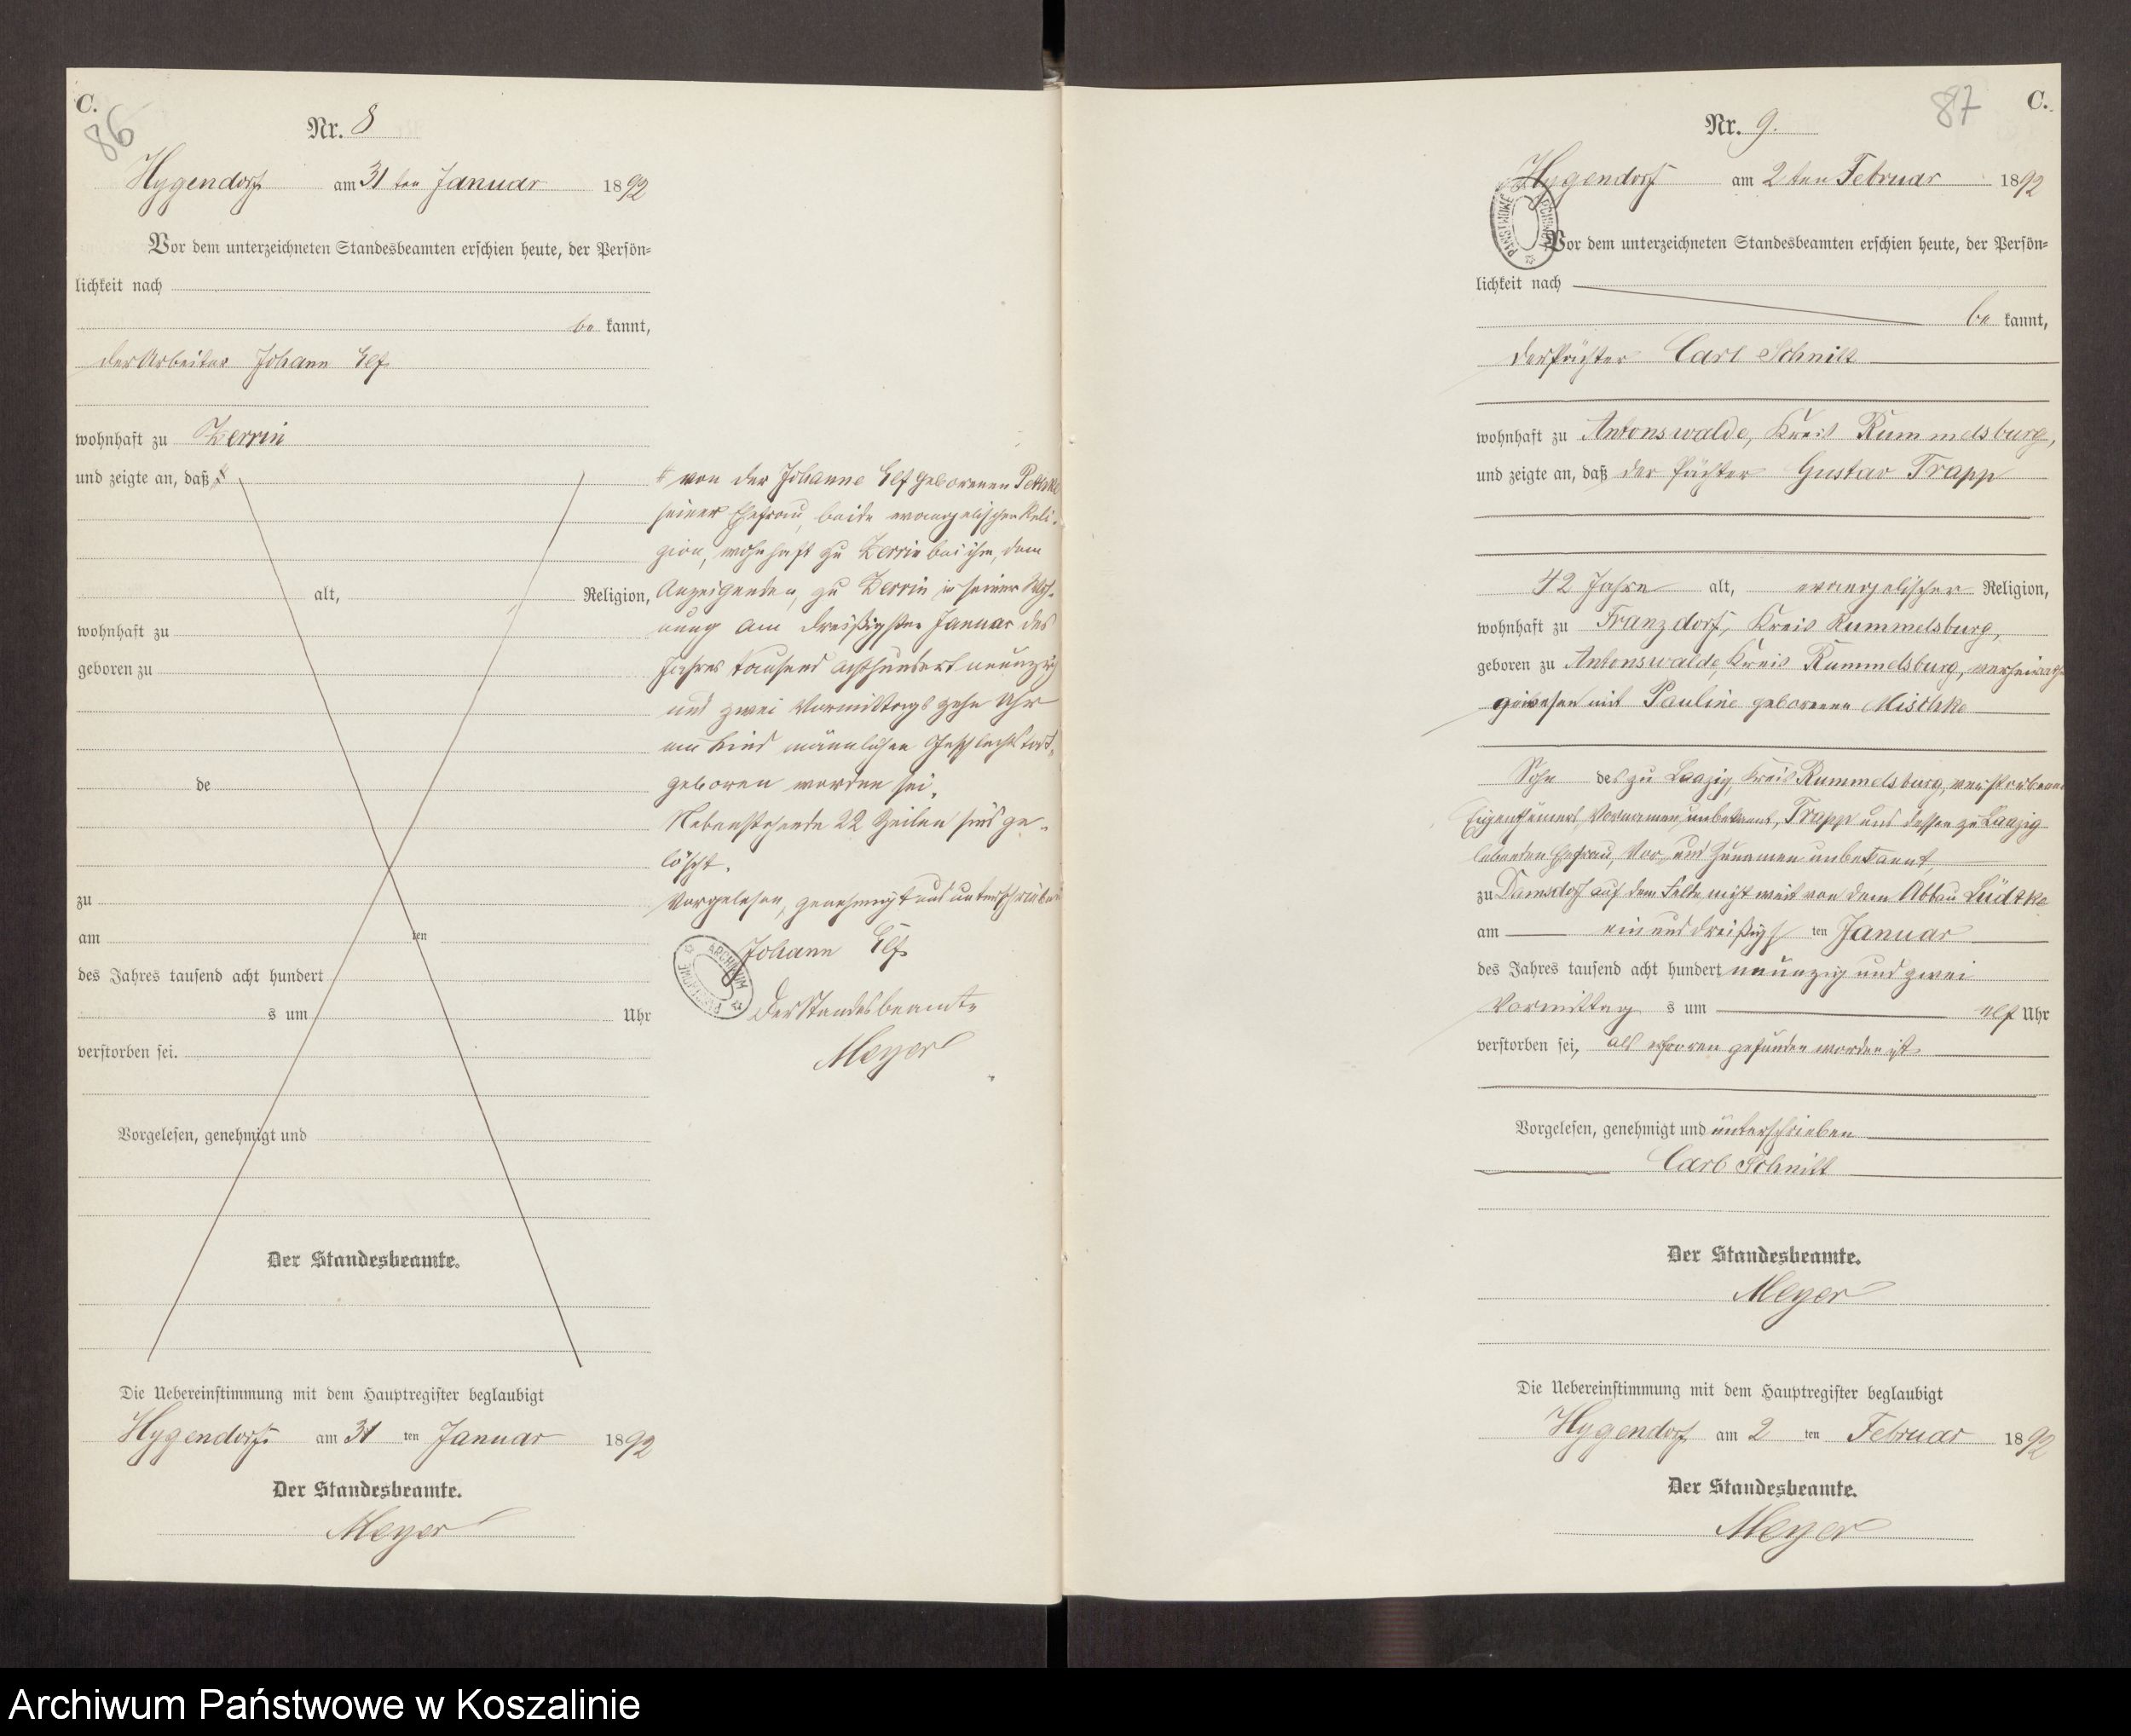 C.
86
Nr. 8
Hygendorf am 31 ten Januar 1892
Vor dem unterzeichneten Standesbeamten erschien heute, der Persön=
lichkeit nach
be kannt,
der Arbeiter Johann Elf
wohnhaft zu Zerrin
und zeigte an, daß
alt, Religion,
wohnhaft zu
geboren zu
de
zu
am ten
des Jahres tausend acht hundert
s um Uhr
verstorben sei.
Vorgelesen, genehmigt und
Der Standesbeamte.
Die Uebereinstimmung mit dem Hauptregister beglaubigt
Hygendorf am 31 ten Januar 1892
Der Standesbeamte.
Meyer
von der Johanne Elf geborenen Pethke
seiner Ehefrau, beide evangelischer Reli-
gion, wohnhaft zu Zerrin bei ihm, dem
Anzeigenden, zu Zerrin in seiner Woh-
nung am dreißigsten Januar des
Jahres tausend achthundert neunzig
und zwei Vormittags zehn Uhr
ein Kind männlichen Geschlechts todt-
geboren worden sei.
Nebenstehende 22 Zeilen sind ge-
löscht.
Vorgelesen, genehmigt und unterschrieben
Johann Elf
ARCHIWUM PAŃSTWOWE
Der Standesbeamte
Meyer
C.
87
Nr. 9.
Hygendorf am 2 ten Februar 1892
ARCHIWUM PAŃSTWOWE
Vor dem unterzeichneten Standesbeamten erschien heute, der Persön=
lichkeit nach
be kannt,
der Pächter Carl Schnitt
wohnhaft zu Antonswalde, Kreis Rummelsburg,
und zeigte an, daß der Pächter Gustav Trapp
42 Jahre alt, evangelischer Religion,
wohnhaft zu Franzdorf, Kreis Rummelsburg,
geboren zu Antonswalde, Kreis Rummelsburg, verheirathet
gewesen mit Pauline geborenen Mischke
Sohn des zu Laazig, Kreis Rummelsburg, verstorbenen
Eigenthümers, Vornamen unbekannt, Trapp und dessen zu Laazig
lebenden Ehefrau, Vor- und Zunamen unbekannt,
zu Damsdorf auf dem Felde nicht weit von dem Abbau Lüdtke
am ein und dreißigs ten Januar
des Jahres tausend acht hundert neunzig und zwei
Vormittag s um elf Uhr
verstorben sei, als erfroren gefunden worden ist.
Vorgelesen, genehmigt und unterschrieben
Carl Schnitt
Der Standesbeamte.
Meyer
Die Uebereinstimmung mit dem Hauptregister beglaubigt
Hygendorf am 2 ten Februar 1892
Der Standesbeamte.
Meyer
Archiwum Państwowe w Koszalinie